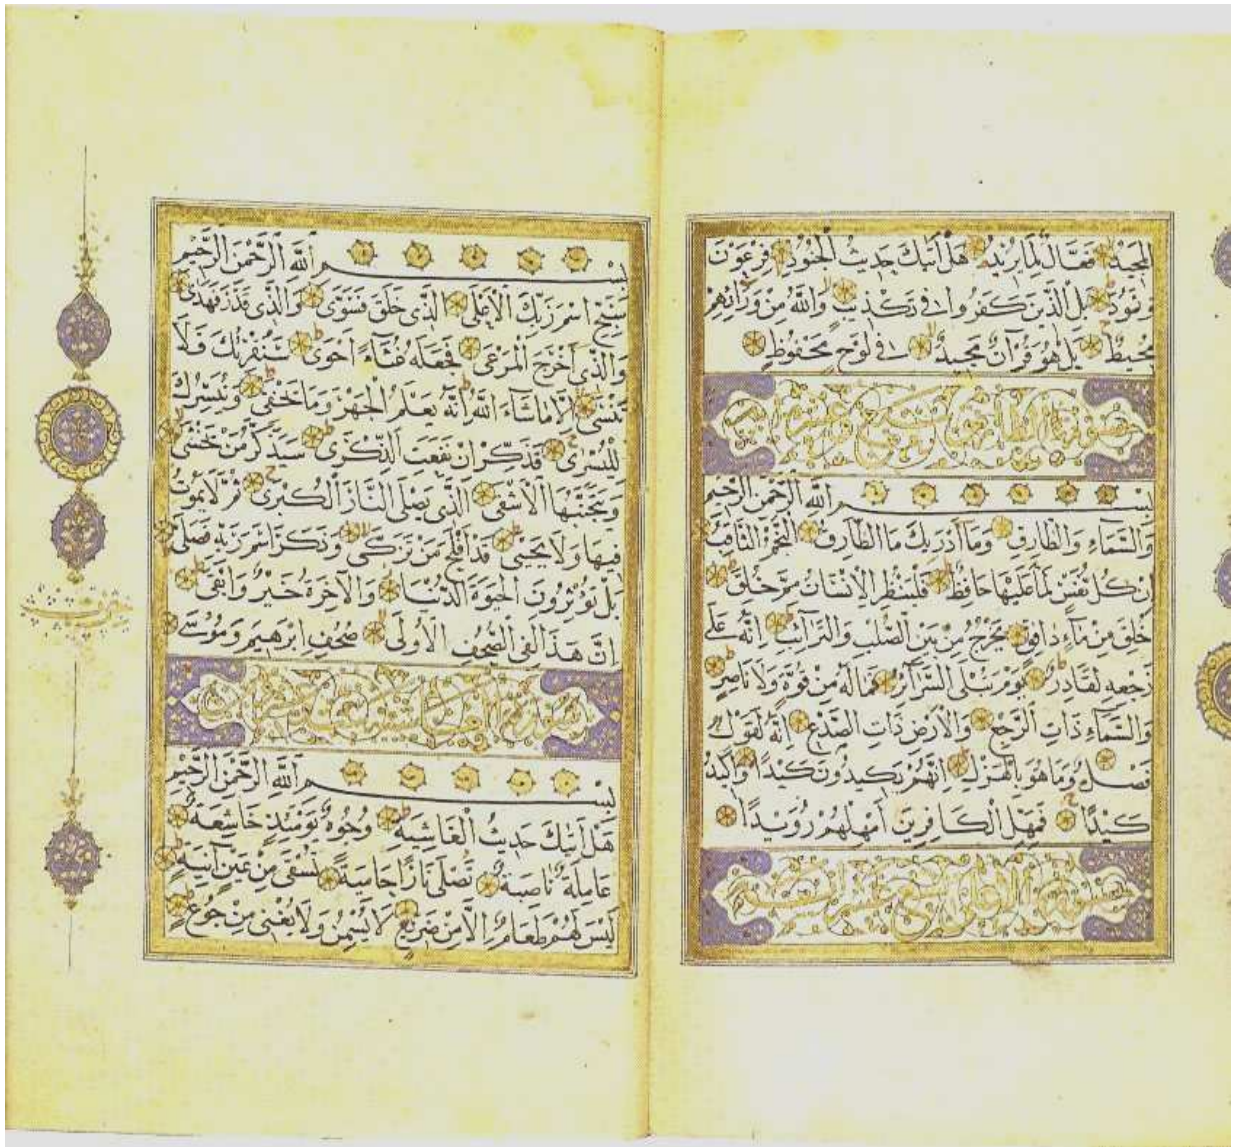 المجيد فعال لما يريد هل أتيك حديث الجنود فرعون
وثمود بل الذين كفروا في تكذيب والله من ورائهم
محيط بل هو قرآن مجيد في لوح محفوظ
سورة الطارق سبع عشرة آية
بسم الله الرحمن الرحيم
والسماء والطارق وما أدريك ما الطارق النجم الثاقب
إن كل نفس لما عليها حافظ فلينظر الإنسان مم خلق
خلق من ماء دافق يخرج من بين الصلب والترائب إنه على
رجعه لقادر يوم تبلى السرائر فما له من قوة ولا ناصر
والسماء ذات الرجع والأرض ذات الصدع إنه لقول
فصل وما هو بالهزل إنهم يكيدون كيدا وأكيد
كيدا فمهل الكافرين أمهلهم رويدا
سورة الأعلى تسع عشرة آية
بسم الله الرحمن الرحيم
سبح اسم ربك الأعلى الذي خلق فسوى والذي قدر فهدى
والذي أخرج المرعى فجعله غثاء أحوى سنقرئك فلا
تنسى إلا ما شاء الله إنه يعلم الجهر وما يخفى ونيسرك
لليسرى فذكر إن نفعت الذكرى سيذكر من يخشى
ويتجنبها الأشقى الذي يصلى النار الكبرى ثم لا يموت
فيها ولا يحيى قد أفلح من تزكى وذكر اسم ربه فصلى
بل تؤثرون الحيوة الدنيا والآخرة خير وأبقى
إن هذا لفي الصحف الأولى صحف ابرهيم وموسى
سورة الغاشية ست وعشرون آية
بسم الله الرحمن الرحيم
هل أتيك حديث الغاشية وجوه يومئذ خاشعة
عاملة ناصبة تصلى نارا حامية تسقى من عين آنية
ليس لهم طعام إلا من ضريع لا يسمن ولا يغني من جوع